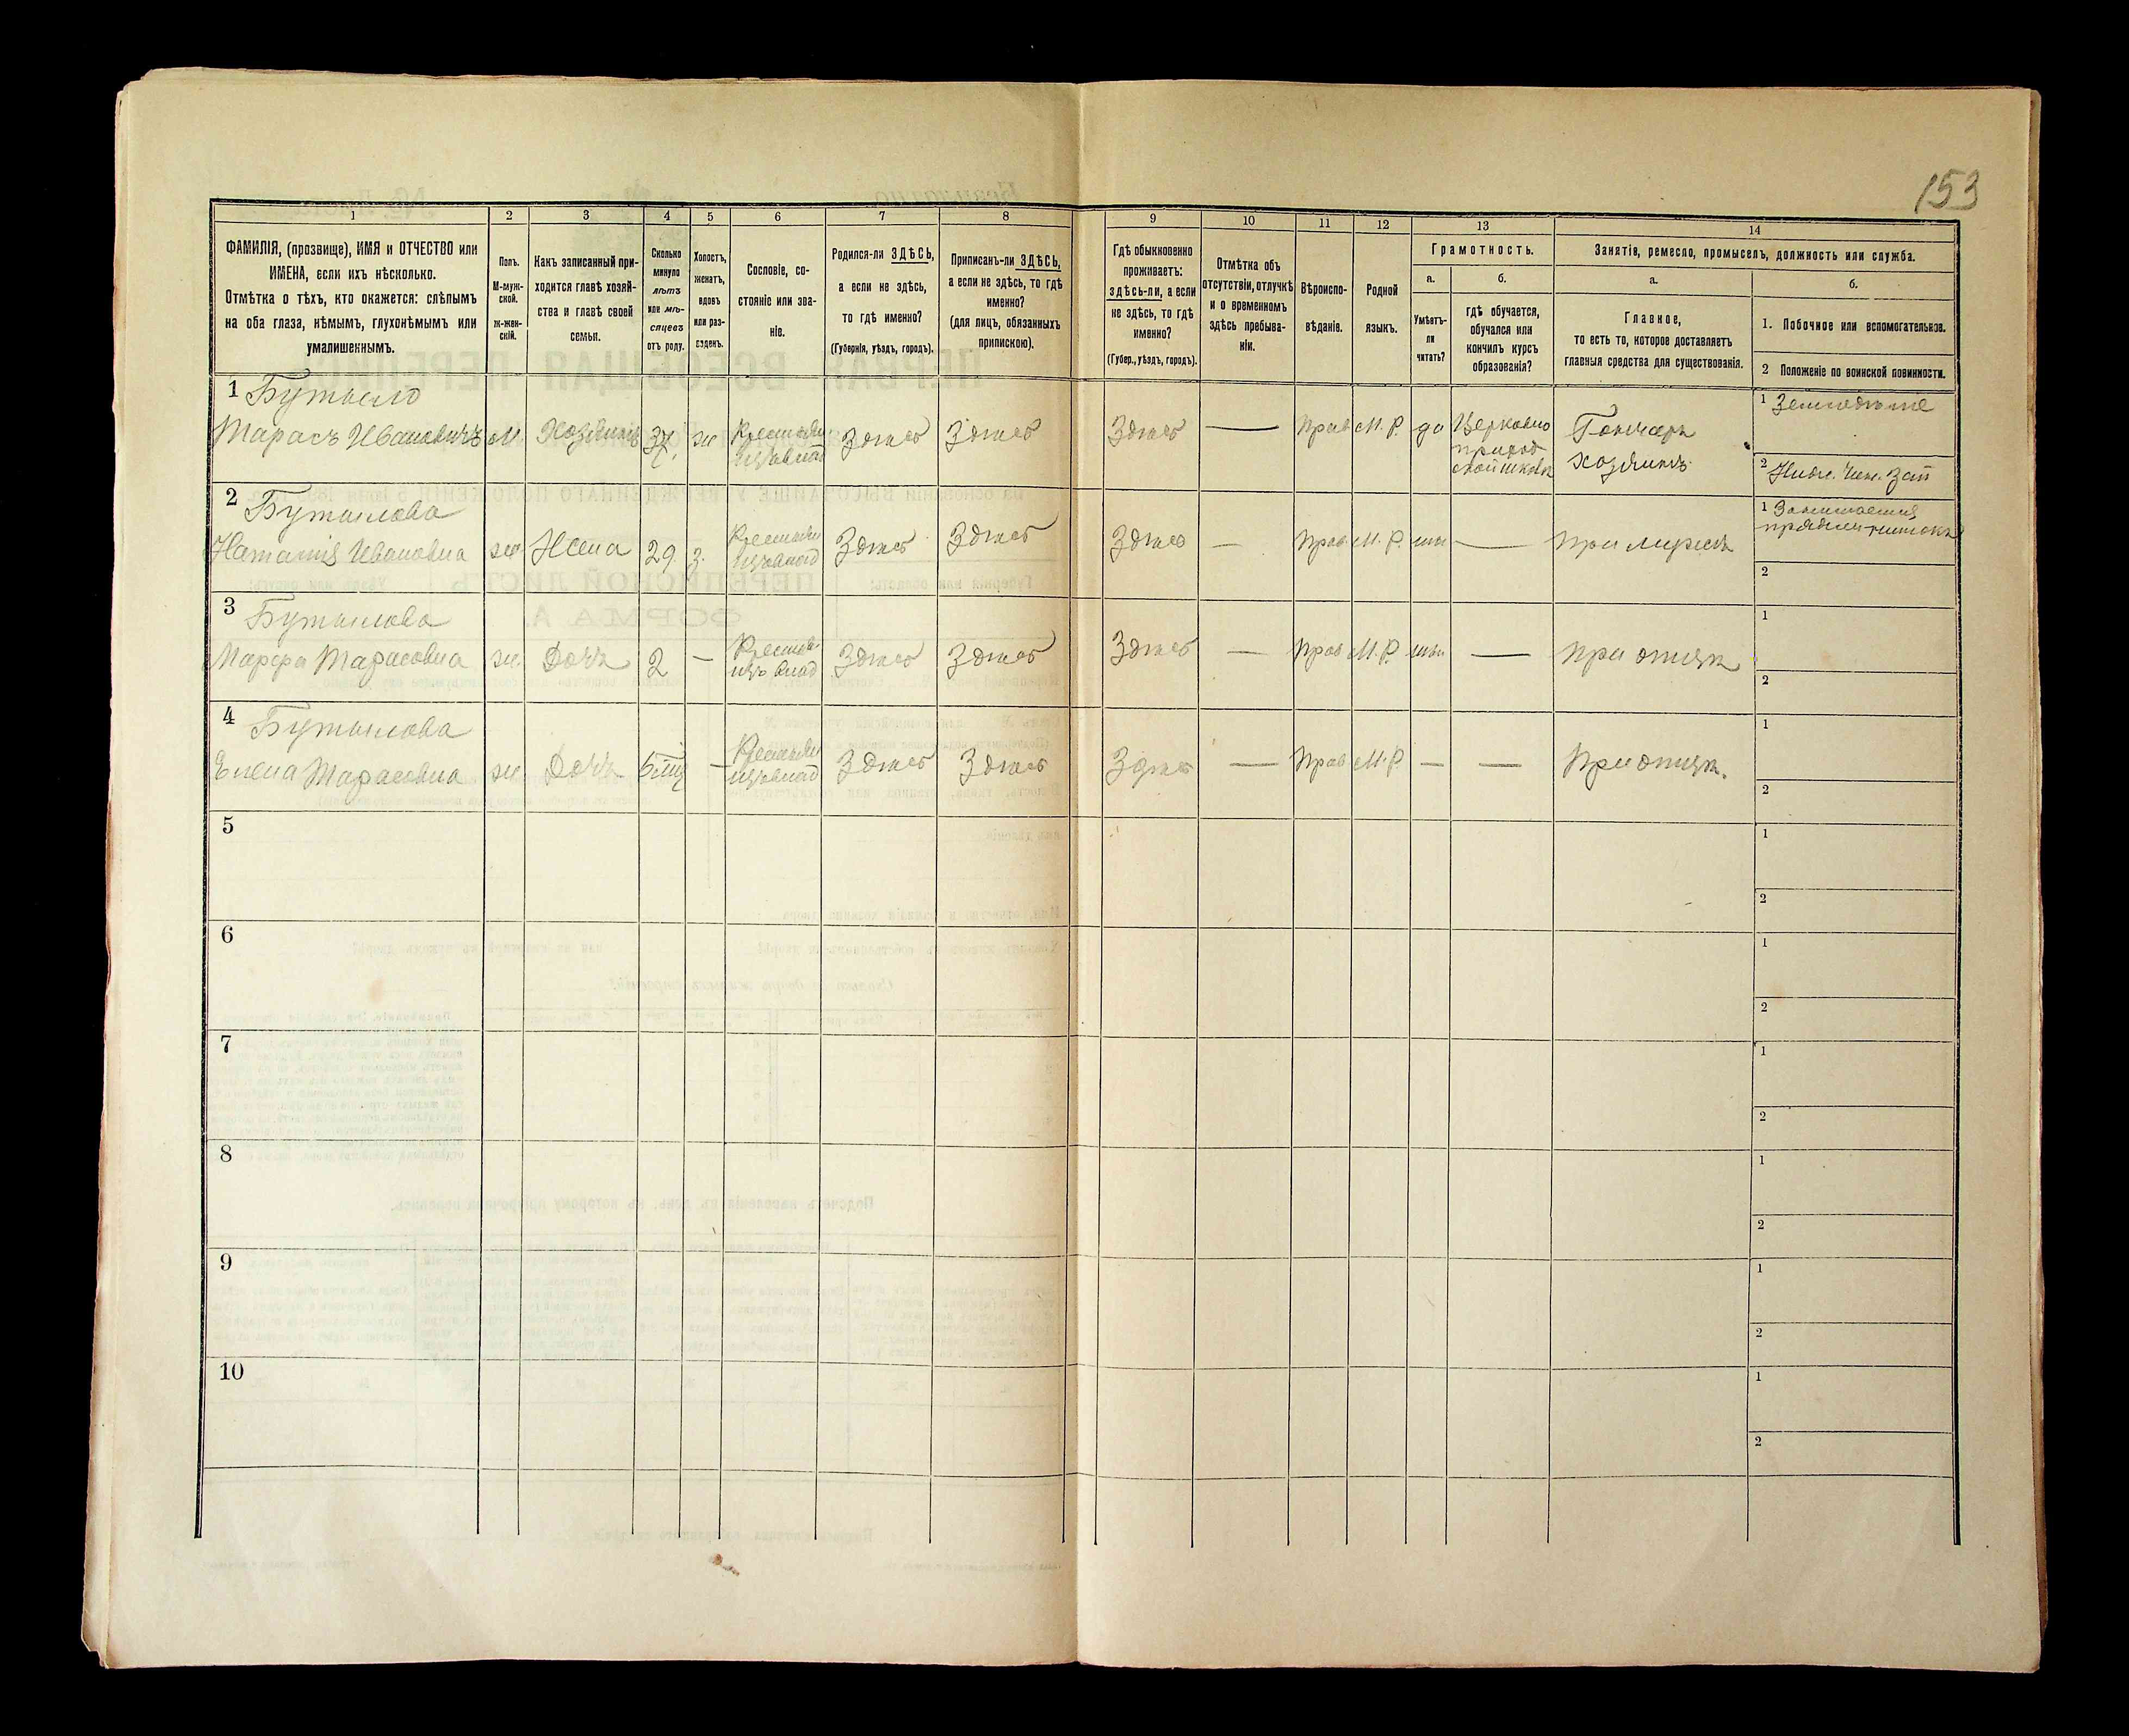 153
1
2
3
4
5
6
7
8
9
10
11
12
13
14
ФАМИЛІЯ, (прозвище), ИМЯ и ОТЧЕСТВО или
ИМЕНА, если ихъ нѣсколько.
Отмѣтка о тѣхъ, кто окажется: слѣпымъ
на оба глаза, нѣмымъ, глухонѣмымъ или
умалишеннымъ.
Полъ.
М-муж-
ской.
Ж-жен-
скій.
Какъ записанный при-
ходится главѣ хозяй-
ства и главѣ своей
семьи.
Сколько
минуло
лѣтъ
или мѣ-
сяцевъ
отъ роду.
Холостъ,
женатъ,
вдовъ
или раз-
веденъ.
Сословіе, со-
стояніе или зва-
ніе.
Родился-ли ЗДѢСЬ,
а если не здѣсь,
то гдѣ именно?
(Губернія, уѣздъ, городъ).
Приписанъ-ли ЗДѢСЬ,
а если не здѣсь, то гдѣ
именно?
(для лицъ, обязанныхъ
припискою).
Гдѣ обыкновенно
проживаетъ:
здѣсь-ли, а если
не здѣсь, то гдѣ
именно?
(Губер., уѣздъ, городъ).
Отмѣтка объ
отсутствіи, отлучкѣ
и о временномъ
здѣсь пребыва-
ніи.
Вѣроиспо-
вѣданіе.
Родной
языкъ.
Грамотность.
а.
Умѣетъ-
ли
читать?
б.
гдѣ обучается,
обучался или
кончилъ курсъ
образованія?
Занятія, ремесло, промыселъ, должность или служба.
а.
Главное,
то есть то, которое доставляетъ
главныя средства для существованія.
б.
1. Побочное или вспомогательное.
2 Положеніе по воинской повинности.
1 Бутыло
Тарасъ Ивановичъ М. Хозяинъ 37 ж Крестьян. изъ влад Здѣсь Здѣсь Здѣсь — Прав М.Р. да Церковно приход ской школѣ Гончаръ хозяинъ
1 Земледѣліе
2 Нижн. Чин. Зап
2 Бутылова
Наталія Ивановна ж. Жена 29 з. Крестьян изъ влад Здѣсь Здѣсь Здѣсь — Прав. М.Р. нѣт — при мужѣ
1 Занимается
2
3 Бутылова
Марфа Тарасовна ж. Дочь 2 — Крестьян изъ влад Здѣсь Здѣсь Здѣсь — Прав М.Р. нѣт — при отцѣ
1
2
4 Бутылова
Елена Тарасовна ж. Дочь 5 мц — Крестьян изъ влад Здѣсь Здѣсь Здѣсь — Прав М.Р — — При отцѣ.
1
2
5
1
2
6
1
2
7
1
2
8
1
2
9
1
2
10
1
2